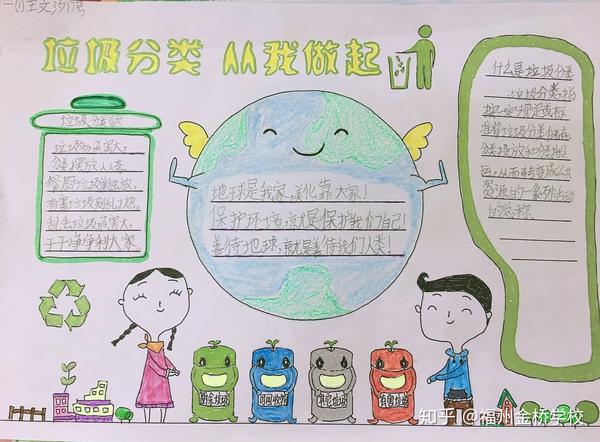 一(1)王文汐
垃圾分类 从我做起
垃圾分类歌
危害大,
分类摆放
餐厨垃圾
有害垃圾别乱扔,
乱丢垃圾危害大,
干干净净利大家
地球是我家,美化靠大家!
保护环境,就是保护我们自己!
善待地球,就是善待我们人类!
什么是垃圾分类
垃圾分类指
按一定规定或标
准将垃圾分类储存、
分类投放和分类搬
运,从而转变成公共
资源的一系列活动
的总称.
厨余垃圾
可回收物
其他垃圾
有害垃圾
知乎 @福州金桥学校